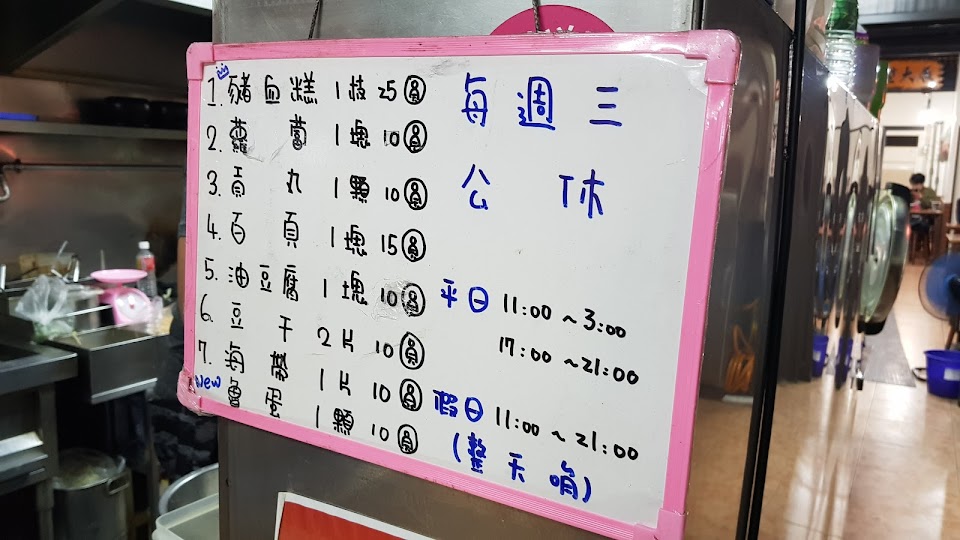 1. 豬血糕 1枝 25圓
2. 蘿蔔 1塊 10圓
3. 貢丸 1顆 10圓
4. 百頁 1塊 15圓
5. 油豆腐 1塊 10圓
6. 豆干 2片 10圓
7. 海帶 1片 10圓
New 魯蛋 1顆 10圓
每週三
公休
平日 11:00~3:00
17:00~21:00
假日 11:00~21:00
(整天唷)